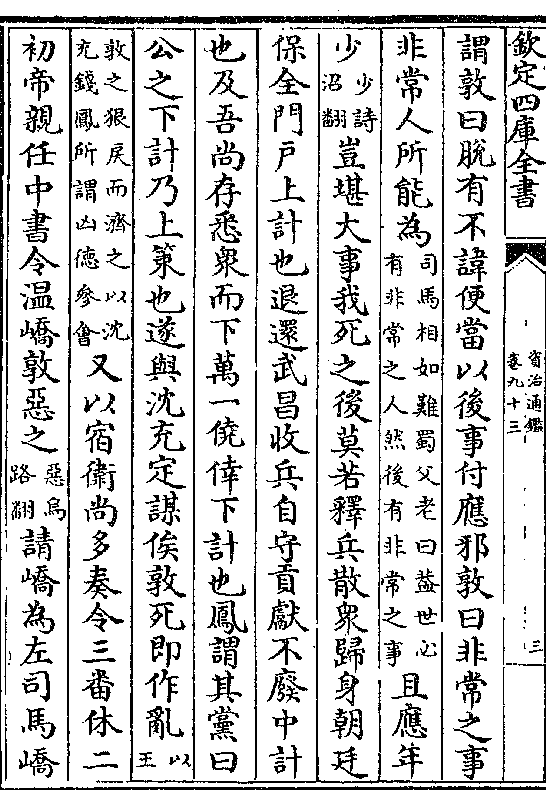 欽定四庫全書
資治通鑑
卷九十三
三
謂敦曰脫有不諱便當以後事付應邪敦曰非常之事
非常人所能為司馬相如難蜀父老曰蓋世必有非常之人然後有非常之事且應年
少少詩沼翻豈堪大事我死之後莫若釋兵散衆歸身朝廷
保全門戸上計也退還武昌收兵自守貢獻不廢中計
也及吾尚存悉衆而下萬一僥倖下計也鳳謂其黨曰
公之下計乃上策也遂與沈充定謀俟敦死即作亂以王
敦之狠戾而濟之以沈充錢鳳所謂凶德參會又以宿衛尚多奏令三番休二
初帝親任中書令温嶠敦惡之惡烏路翻請嶠為左司馬嶠